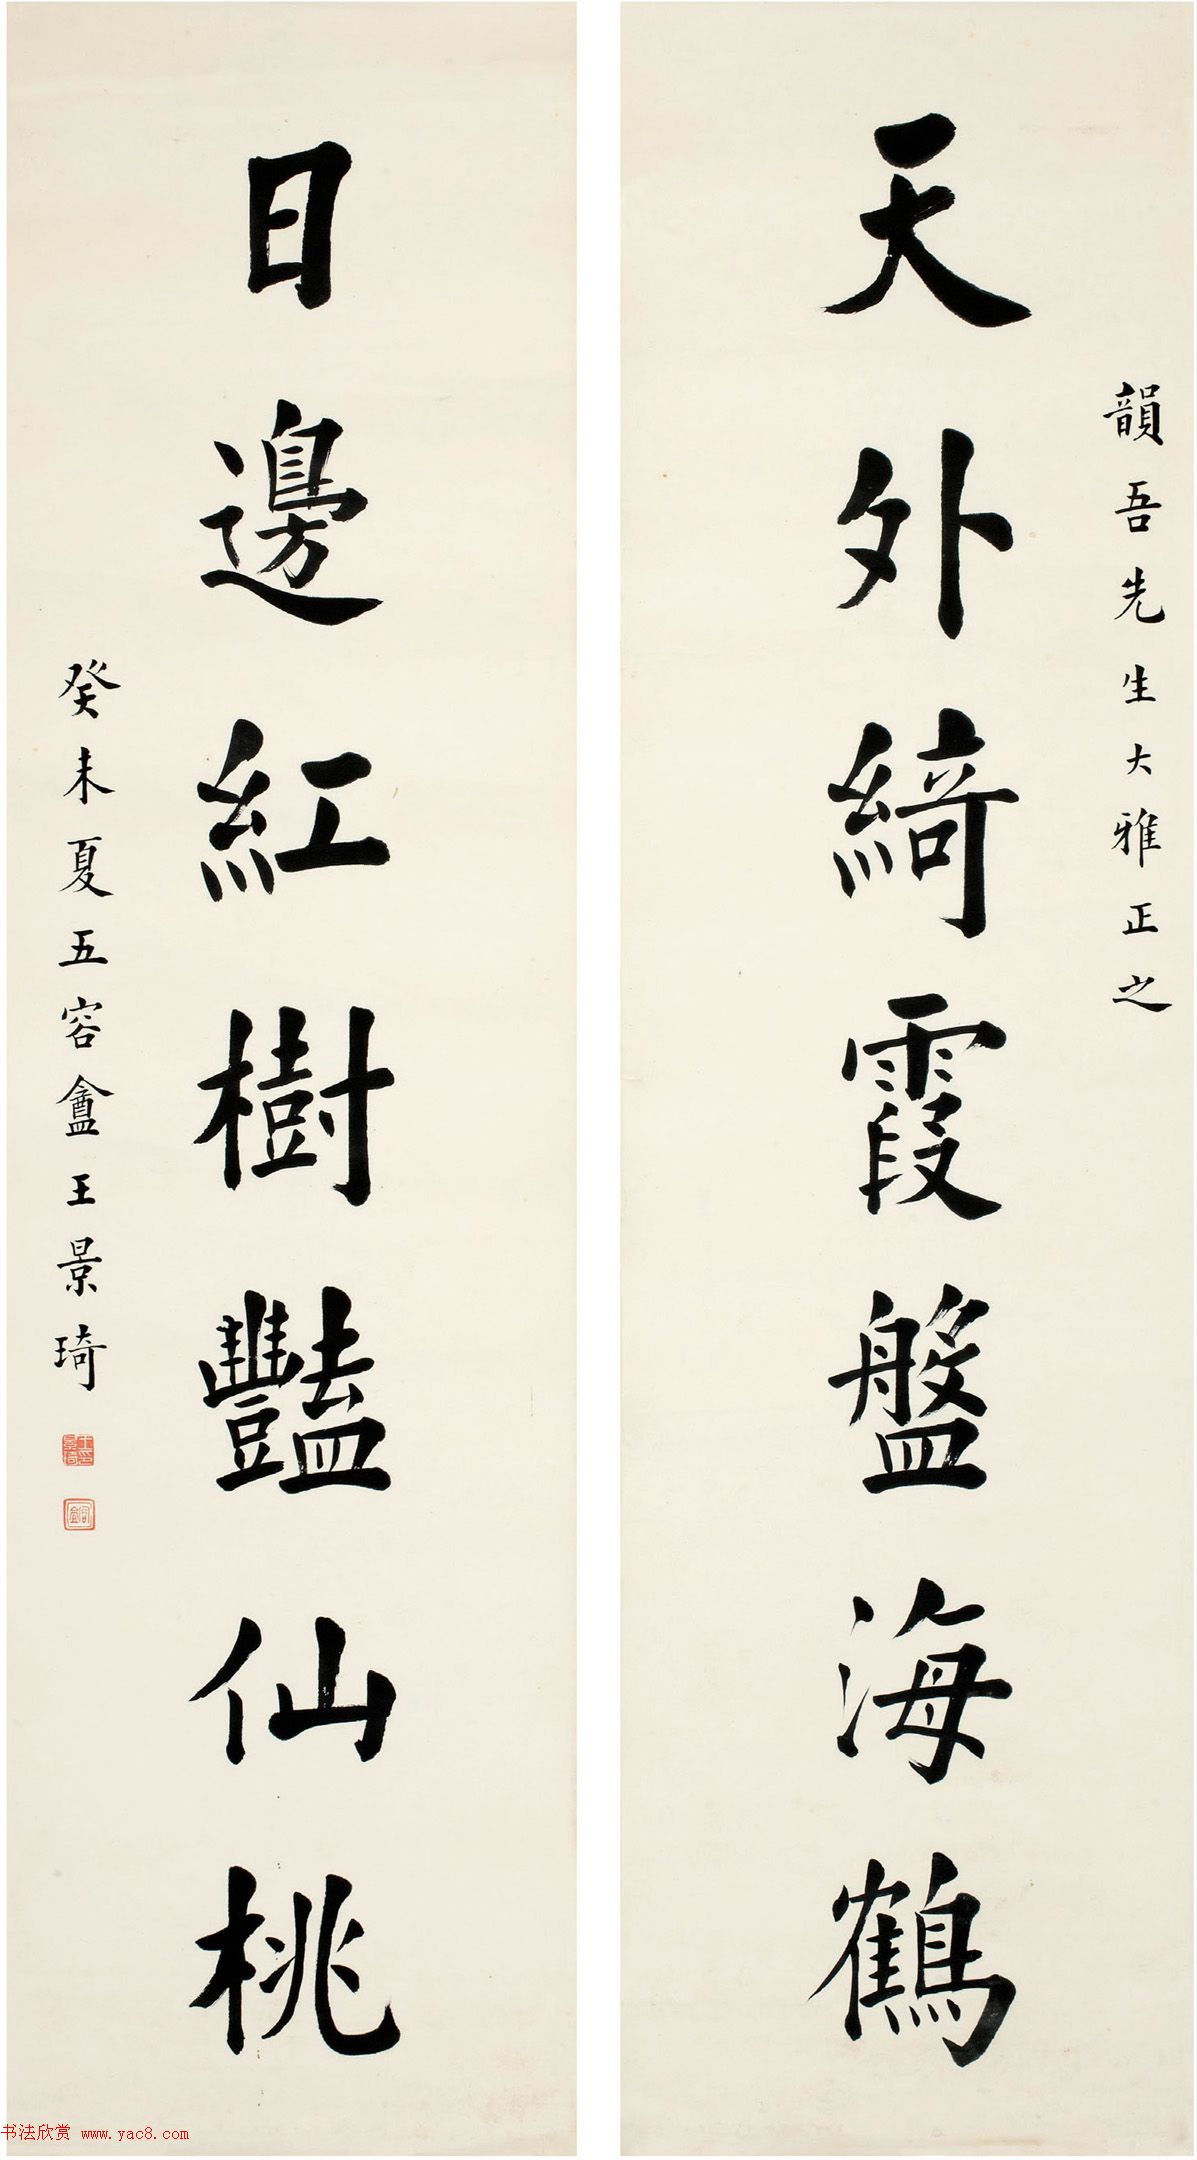 韻吾先生大雅正之
天外綺霞盤海鶴
日邊紅樹豔仙桃
癸未夏五容盦王景琦
书法欣赏 www.yac8.com